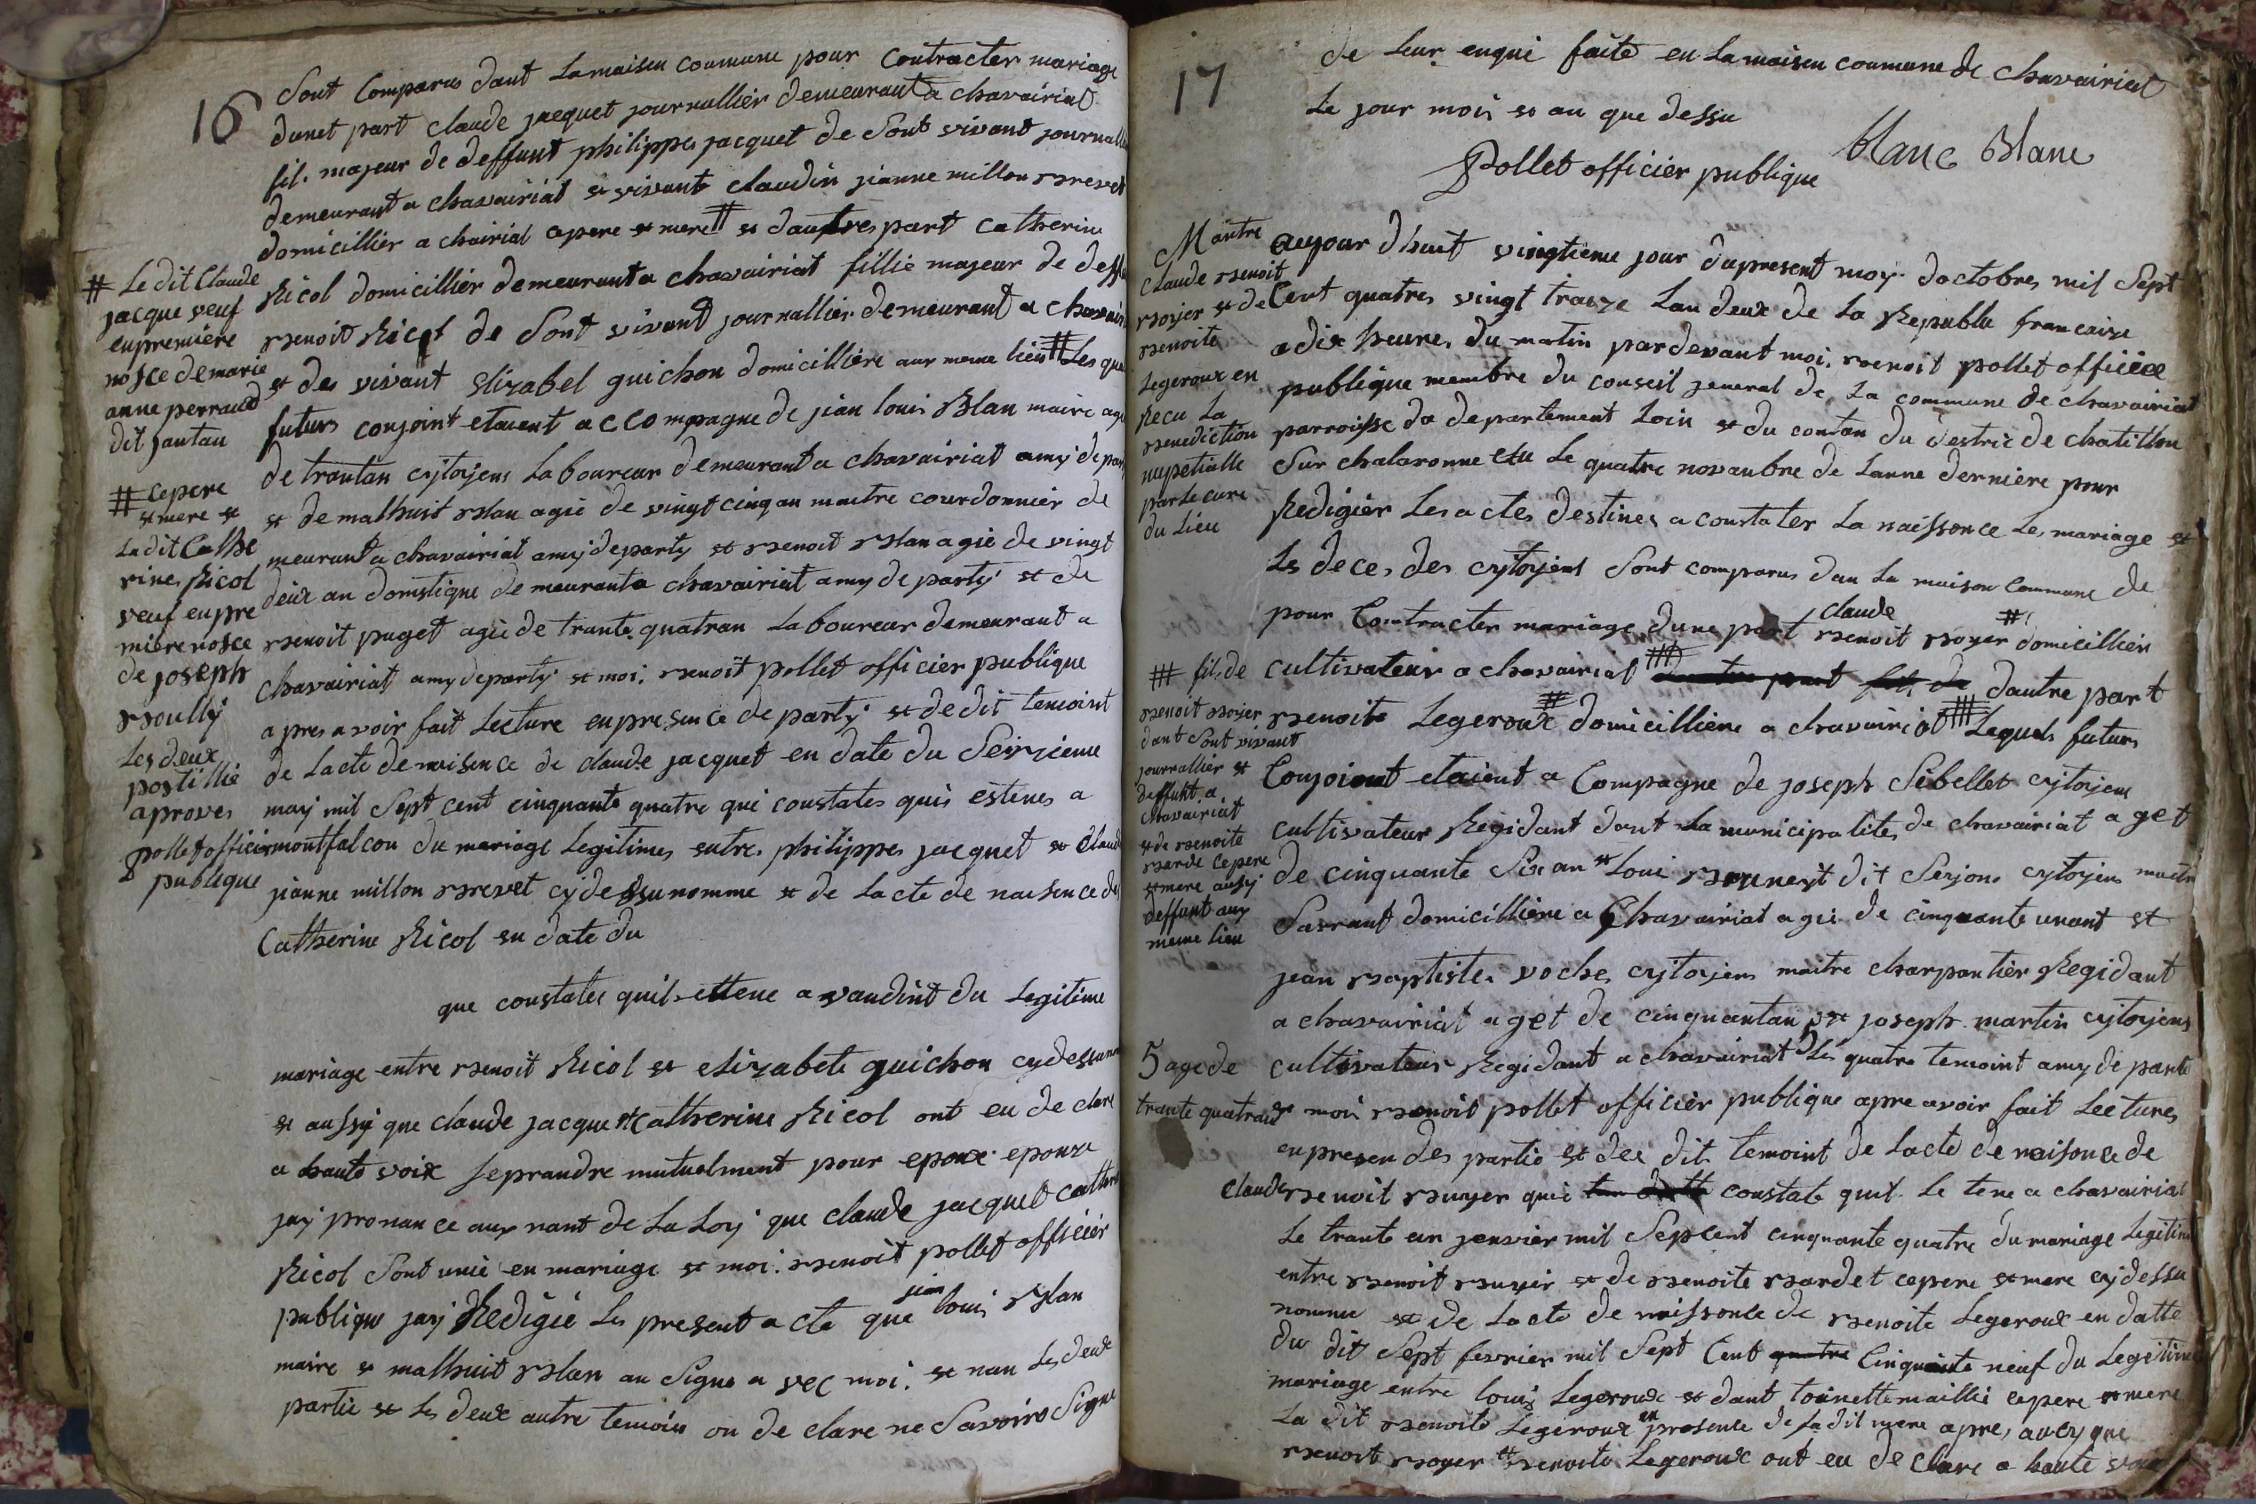 16
Sont Comparus dant Lamaison coumune pour Contracter mariage
dunet part claude jacquet journallier demeurant a chavairiat
fil. majeur de deffunt philippes jacquet de Sont vivant journall
demeurant a chavairiat et vivante claudin jianne millon
domicillier a chairiat cepere et mere # et dautres part Catherine
Ricol domicillier demeurant a chavairiat fillie majeur de deff
benoit Ricol de Sont vivant journallier demeurant a chavair
et des vivant Elizabel guichon domicilliere aux meme lieu # Les que
futurs conjoint etaient accompagne de jian louis Blan maire age
de trantan cytoyens Laboureur demeurant a chavairiat amy de part
et de mathuit blan agie de vingt cinq an maitre courdonnier de
meurant a chavairiat amy de party et benoit blan agie de vingt
deux an domstique demeurant a chavairiat amy de party et de
benoit puget agie de trante quatran Laboureur demeurant a
chavairiat amy de party et moi. benoit pollet officier publique
apres avoir fait Lecture en presence de party et de dit temoint
de Lacte de naisence de claude jacquet en date du Seizieme
may mil Sept cent cinquante quatre qui constates quis estenes a
montfalcon du mariage Legitimes entres philippes jacquet et Claud
jianne millon brevet cy de dsu nomme et de Lacte de naisence de
Catherine Ricol en date du
que constates quil ettene a vandint du Legitime
mariage entre benoit Ricol et elizabete guichon cy dessu
et aussy que claude jacque et Catherine Ricol ont eu de clare
a haute voix seprandre mutuelment pour epoux epouze
jay pronance aux nant de La Loy que claude jacquet cather
Ricol Sont unie en mariage et moi. benoit pollet officier
publique jay Redigie Les present acte que jian loui blan
maire et mathuit blan an Signe avec moi. et nan Les deux
partie et Les deux autre temoin on de clare ne Savoire Signe
# Le dit Claude
jacque veuf
en premiere
nosce de marie
anne perraud
dit jantan
# cepere
et mere et
La dit Cathe
rine Ricol
veuf en pre
miere nosce
de joseph
boully
Les deux
postillie
aproves
pollet officier
publique
17
de Leur enqui faite en La maison coumune de chavairiat
Le jour mois et an que dessu
blanc Blanc
Pollet officier publique
aujour dhuit vingtieme jour du present moy doctobre mil Sept
Cent quatres vingt traize Lan deux de La Republu francaize
a dix heures du matin par devant moi. benoit pollet officier
publique membre du conseil jeneral de La commune de chavairiat
parroisse da departement Loin et du contan du destric de chatillon
Sur chalaronne elu Le quatre novanbre de Lanne derniere pour
Redigier Les actes destines a constater La naissonce Les mariage et
Les deces des cytoyens Sont comparus dan La maison Commune de
pour Contracter mariage dune part claude benoit boyer # domicillier
cultivateur a chavairiat dautre part
benoite Legeroux # domicilliere a chavairiat Lequels futurs
Conjoint etaient a Compagne de joseph Sebellet cytoyens
cultivateur Regidant dant La municipalites de chavairiat a get
de cinquante Six an et Loui dit Serjon cytoyens maitre
domicilliere a Chavairiat agie de cinquante unant et
jean baptiste voches cytoyens maitre charpantier Regidant
a chavairiat aget de cinquantan et joseph martin cytoyens
cultivateur Regidant a chavairiat 5 Les quatre temoint amy de parti
et moi benoit pollet officier publique apre avoir fait Lectures
en presen des partie et des dit temoint de Lacte de naisonce de
claude benoit buyer quie constate quil Le tene a chavairiat
Le trante un jenvier mil Sepcent cinquante quatre du mariage Legitim
entre benoit buyer et de benoite bardet cepere et mere cy dessu
nomme et de Lacte de naissonce de benoite Legeroux en datte
du dit Sept fevrier mil Sept Cent quatre Cinquante neuf du Legitim
mariage entre louis Legeroux et dant toinette maillie cepere et mere
La dit benoite Legeroux en presence de La dit mere apres avoy que
benoit boyer et benoite Legeroux ont eu de Clare a haute voix
Maitre
claude benoit
boyer et de
benoite
Legeroux en
Recu La
benediction
nupetialle
par Le cure
du Lieu
# fil. de
benoit boyer
dant Sont vivant
journallier et
deffunt a
chavairiat
et de benoite
barde cepere
et mere aussy
deffunt aux
meme lieu
5 age de
trante quatran